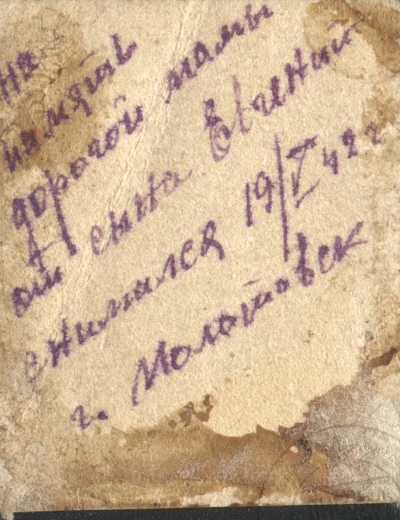 на
память
дорогой мамы
от сына Евгений
снимался 19/V 42 г
г. Молотовск